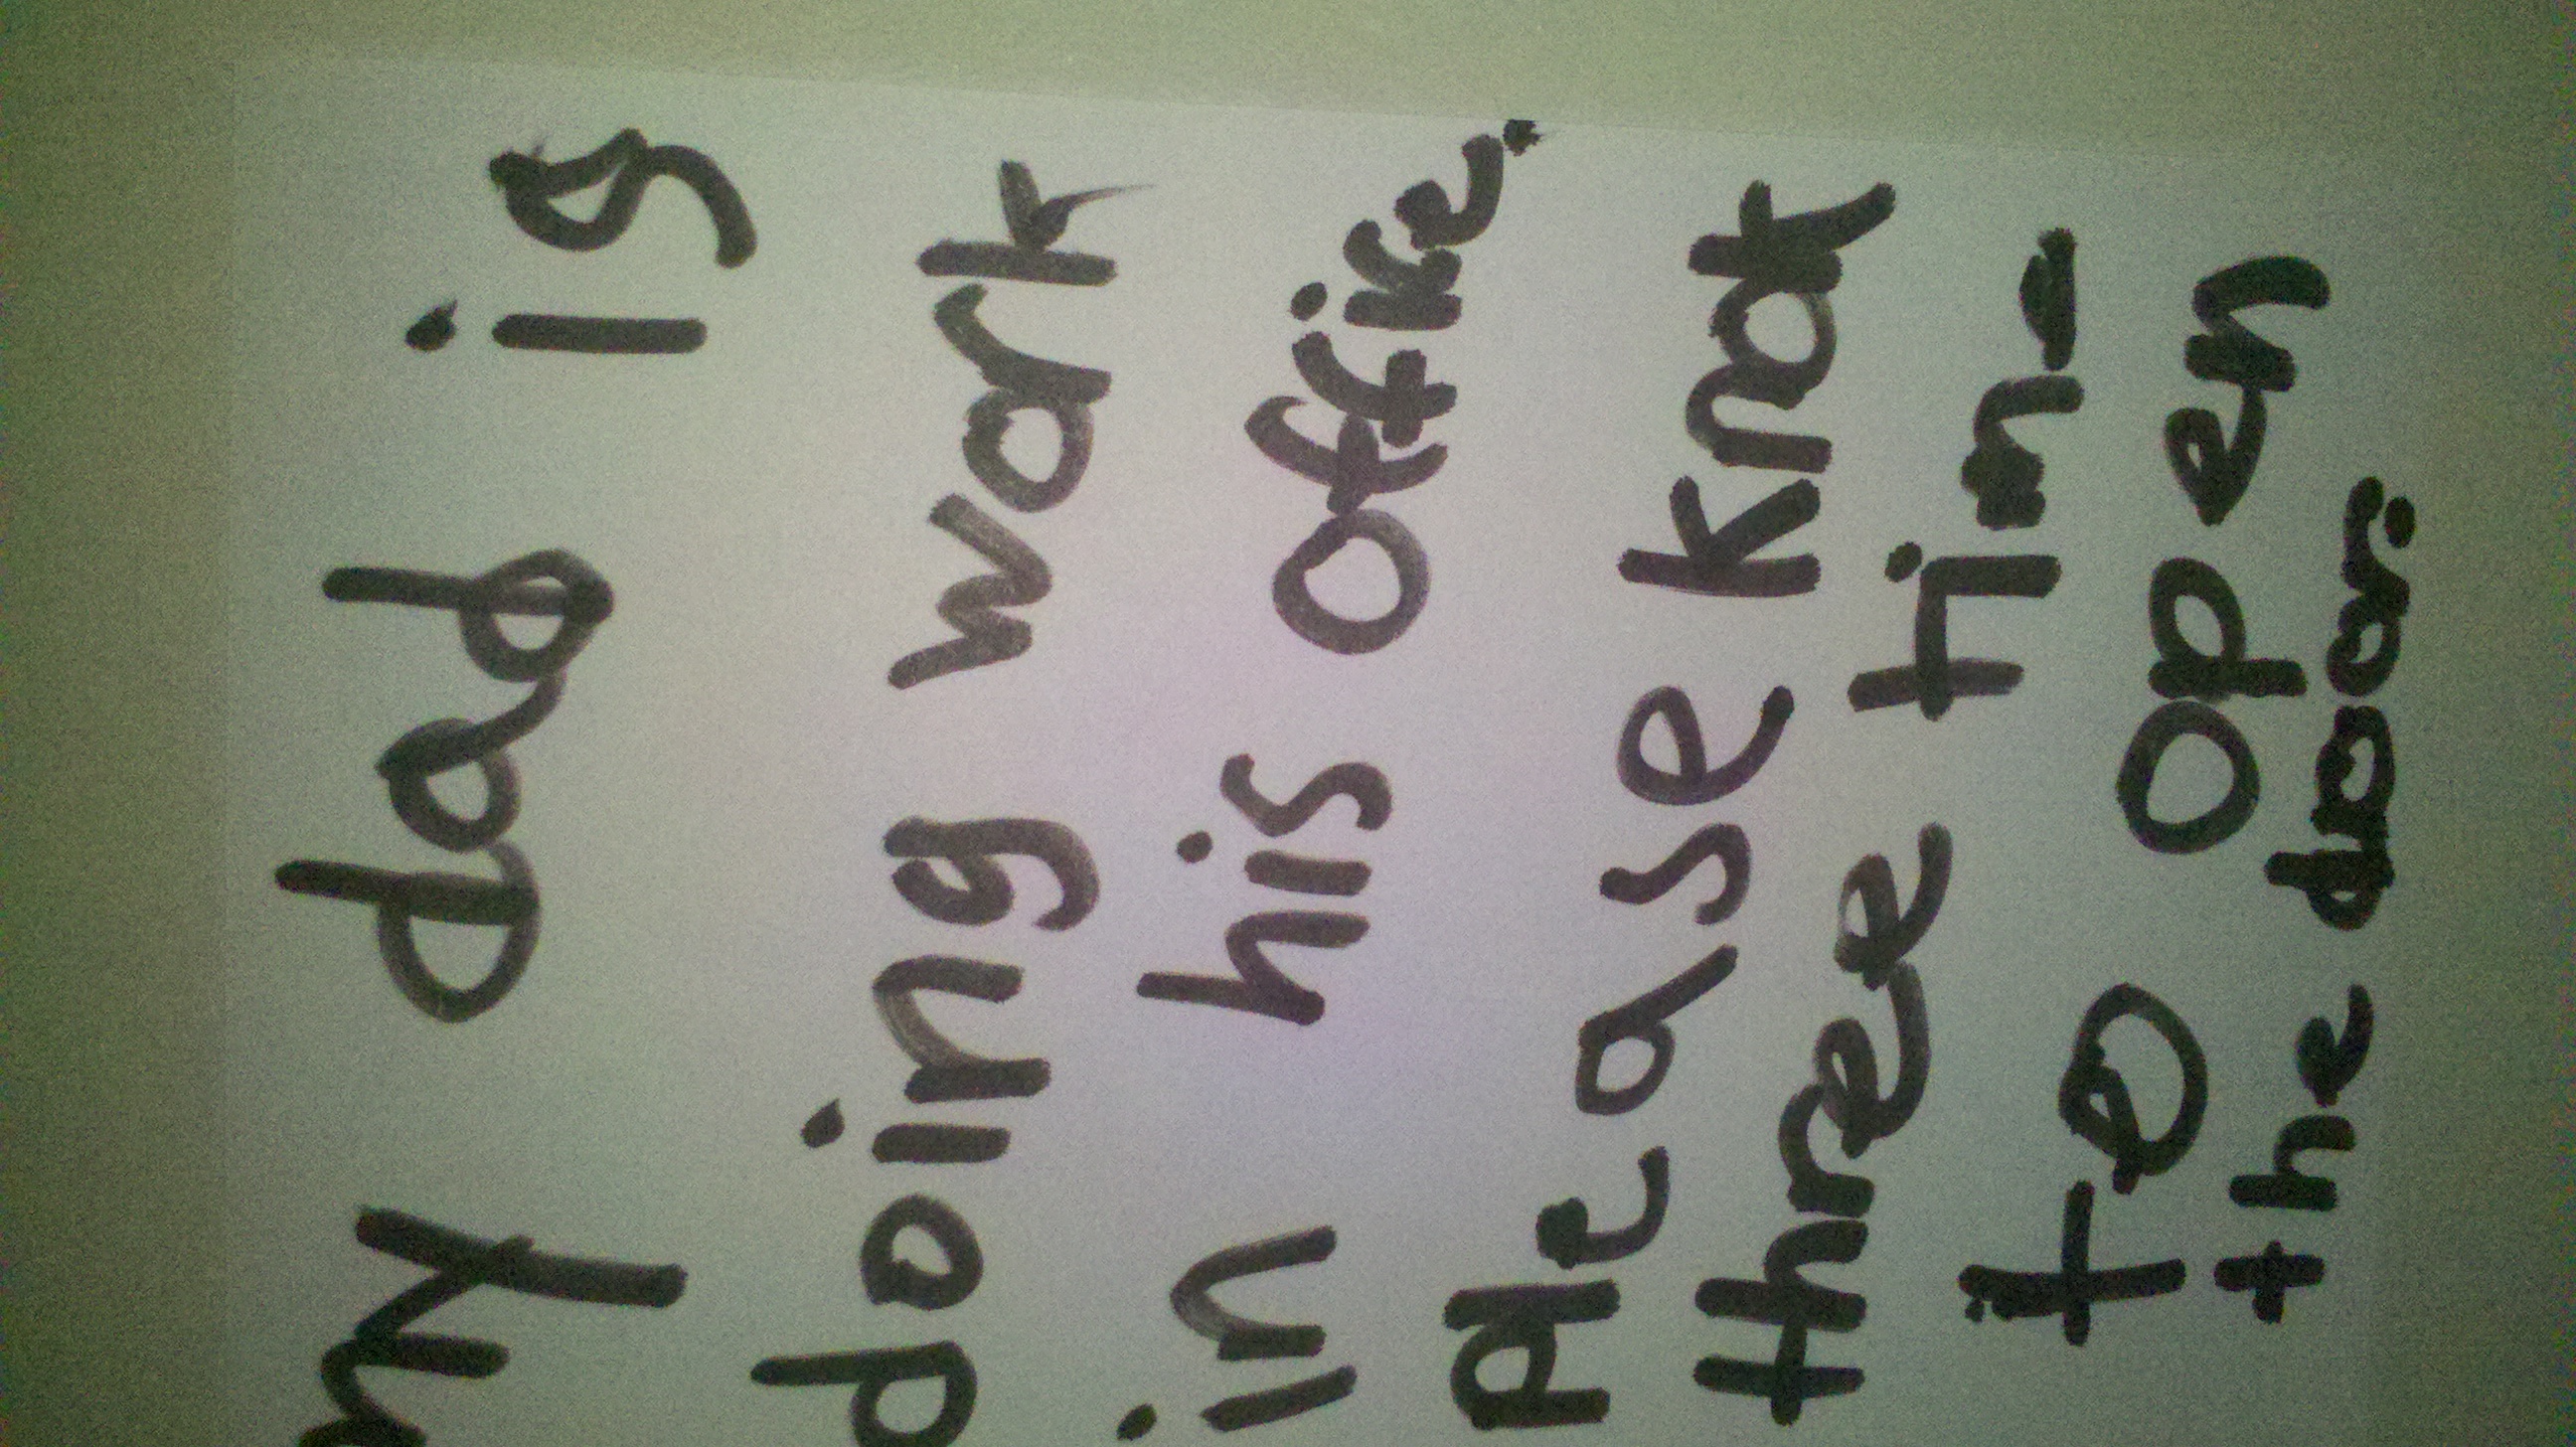 my dad is
doing work
in his offike.
please knok
three tim
to open
the door.